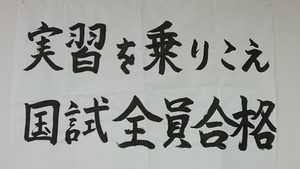 実習を乗りこえ
国試全員合格